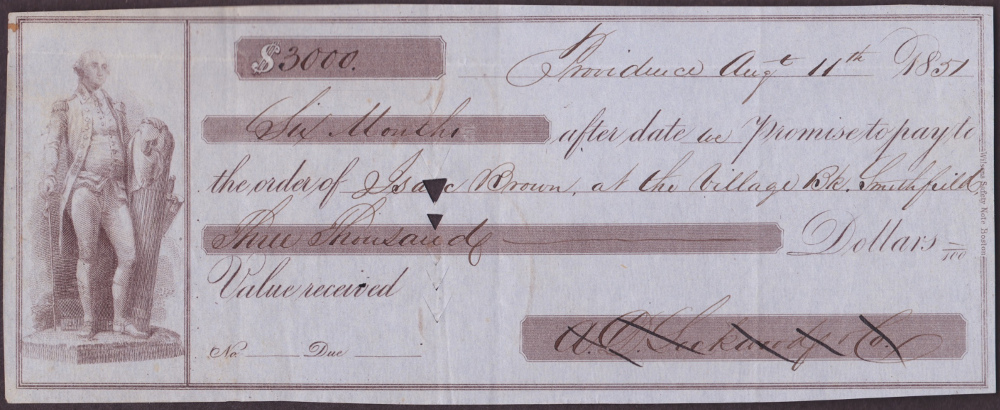 $3000.
Providence Augt 11th 1851
Six Months after date we Promise to pay to
the order of Isaac Brown, at the Village Bk. Smithfield
Three Thousand Dollars /100
Value received
No Due
A. D. Lockwood & Co.
Wilmot Safety Note Boston